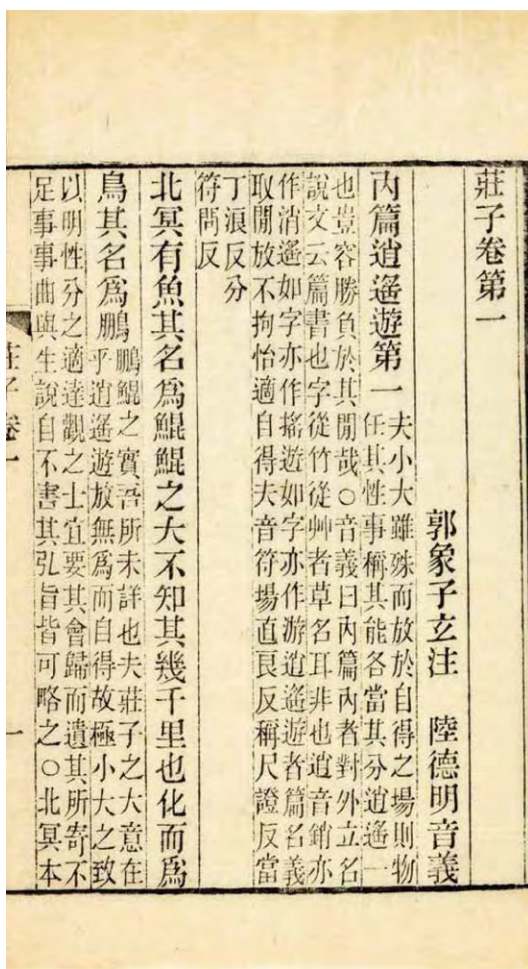 莊子卷第一
郭象子玄注　陸德明音義
內篇逍遙遊第一
夫小大雖殊而放於自得之場則物
任其性事稱其能各當其分逍遙一
也豈容勝負於其閒哉○音義曰內篇內者對外立名
說文云篇書也字從竹從艸者草名耳非也逍音銷亦
作消遙如字亦作搖遊如字亦作游逍遙遊者篇名義
取閒放不拘怡適自得夫音符場直良反稱尺證反當
丁浪反分
符問反
北冥有魚其名爲鯤鯤之大不知其幾千里也化而爲
鳥其名爲鵬
鵬鯤之實吾所未詳也夫莊子之大意在
乎逍遙遊放無爲而自得故極小大之致
以明性分之適達觀之士宜要其會歸而遺其所寄不
足事事曲與生說自不害其弘旨皆可略之○北冥本
莊子卷一
一